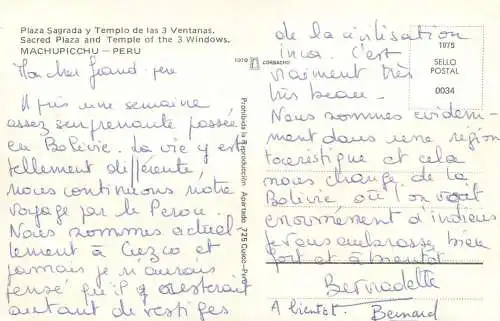 Plaza Sagrada y Templo de las 3 Ventanas.
Sacred Plaza and Temple of the 3 Windows.
MACHUPICCHU — PERU
1070
CORBACHO
Prohibida la Reproducción Apartado 725 Cusco-Perú
1975
SELLO
POSTAL
0034
Mon cher Grand-père
Après une semaine
assez surprenante passée
en Bolivie. La vie y est
tellement différente,
nous continuons notre
voyage par le Pérou.
Nous sommes actuel-
lement à Cuzco et
jamais je n'aurais
pensé qu'il y resterait
autant de vestiges
de la civilisation
inca. C'est
vraiment très
très beau.
Nous sommes évidem-
ment dans une région
touristique et cela
nous change de la
Bolivie où l'on voit
énormément d'indiens
Je vous embrasse bien
fort et à bientôt
Bernadette
A bientôt. Bernard